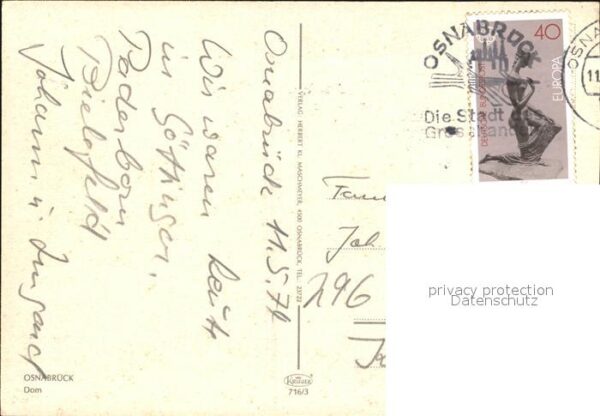 Osnabrück 11.5.74
Wir waren heute
in Göttingen,
Paderborn
Bielefeld
Johann u. Irmgard
OSNABRÜCK
Dom
VERLAG HERBERT KL. MASCHMEYER, 4500 OSNABRÜCK, TEL. 23722
Krüger
716/3
OSNABRÜCK
Die Stadt
OSNA
11.
40
EUROPA
DEUTSCHE BUNDESPOST
Fam
Joh.
296
privacy protection
Datenschutz